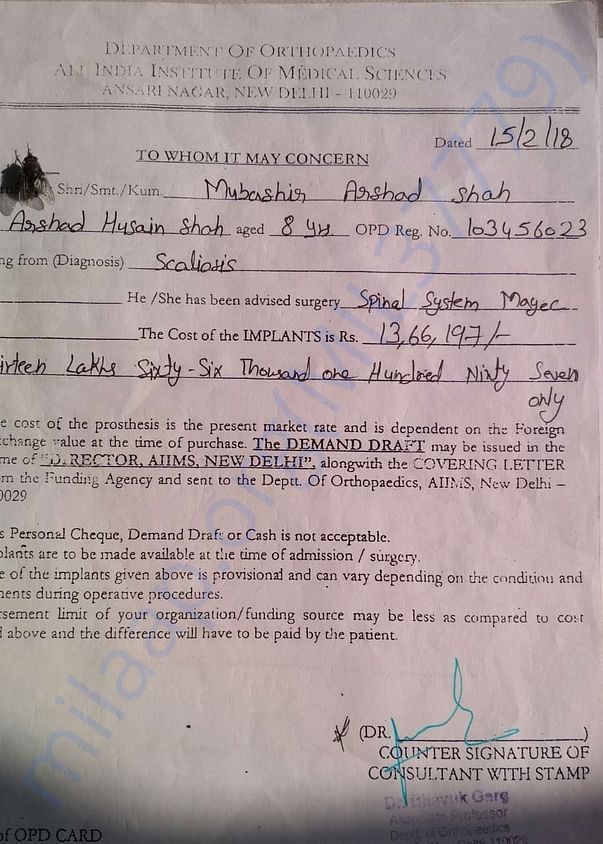 DEPARTMENT OF ORTHOPAEDICS
ALL INDIA INSTITUTE OF MEDICAL SCIENCES
ANSARI NAGAR, NEW DELHI - 110029
Dated 15/2/18
TO WHOM IT MAY CONCERN
Shri/Smt./Kum. Mubashir Arshad Shah
Arshad Husain Shah aged 8 yrs OPD Reg. No. 103456023
ng from (Diagnosis) Scaliosis
He /She has been advised surgery Spinal System Magec
The Cost of the IMPLANTS is Rs. 13,66,197/-
irteen Lakhs Sixty-Six Thousand one Hundred Ninty Seven
only
e cost of the prosthesis is the present market rate and is dependent on the Foreign
change value at the time of purchase. The DEMAND DRAFT may be issued in the
me of "DIRECTOR, AIIMS, NEW DELHI", alongwith the COVERING LETTER
m the Funding Agency and sent to the Deptt. Of Orthopaedics, AIIMS, New Delhi –
0029
s Personal Cheque, Demand Draft or Cash is not acceptable.
plants are to be made available at the time of admission / surgery.
e of the implants given above is provisional and can vary depending on the condition and
ments during operative procedures.
rsement limit of your organization/funding source may be less as compared to cost
d above and the difference will have to be paid by the patient.
(DR. )
COUNTER SIGNATURE OF
CONSULTANT WITH STAMP
Dr. Bhavuk Garg
Associate Professor
Deptt. of Orthopaedics
110029
of OPD CARD